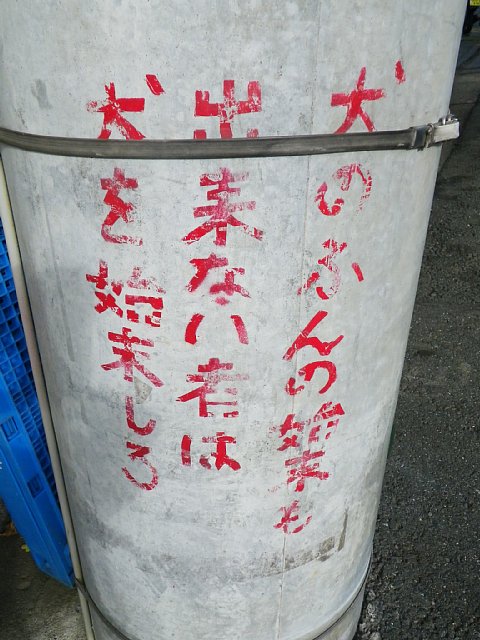 犬のふんの始末も
出来ない者は
犬を始末しろ